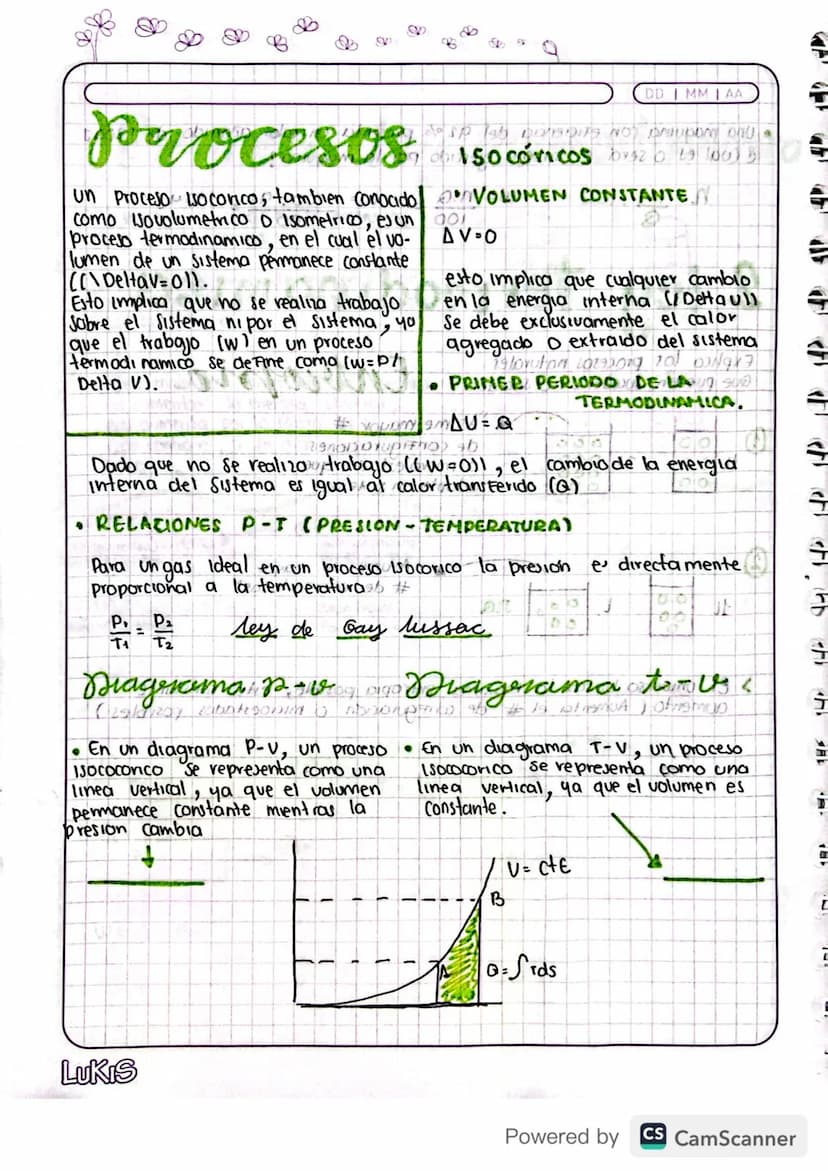 DD | MM | AA
Procesos
Isocóricos
Un Proceso Isoconco, tambien conocido
como isovolumetrico o isometrico, es un
proceso termodinamico, en el cual el vo-
lumen de un sistema permanece constante
((\Delta V=0)).
Esto implica que no se realiza trabajo
sobre el sistema ni por el sistema, ya
que el trabajo (w) en un proceso
termodinamico se define como (w=P/
Delta V).
• VOLUMEN CONSTANTE
ΔV=0
esto implica que cualquier cambio
en la energia interna (/Delta U))
se debe exclusivamente el calor
agregado o extraido del sistema
• PRIMER PERIODO DE LA
TERMODINAMICA.
ΔU=Q
Dado que no se realiza trabajo ((W=0)), el cambio de la energia
interna del sistema es igual al calor transferido (Q)
• RELACIONES P-T (PRESION-TEMPERATURA)
Para un gas ideal en un proceso isocorico la presion es directamente
proporcional a la temperatura
P1/T1 = P2/T2 ley de Gay lussac
Diagrama p-v
• En un diagrama P-V, un proceso
isococorico se representa como una
linea vertical, ya que el volumen
permanece constante mentras la
presion cambia
Diagrama t-v
• En un diagrama T-V, un proceso
isococorico se representa como una
linea vertical, ya que el volumen es
constante.
V= ctE
B
A
Q=∫Tds
LUKIS
Powered by CS CamScanner